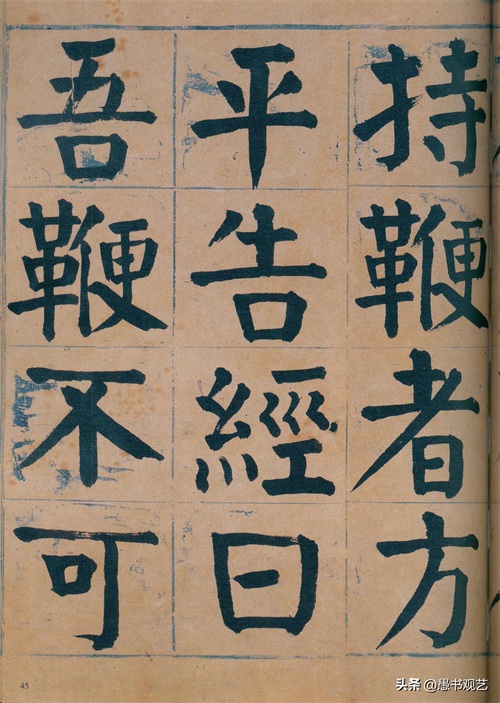 持鞭者方
平告經曰
吾鞭不可
45
头条 @愚书观艺